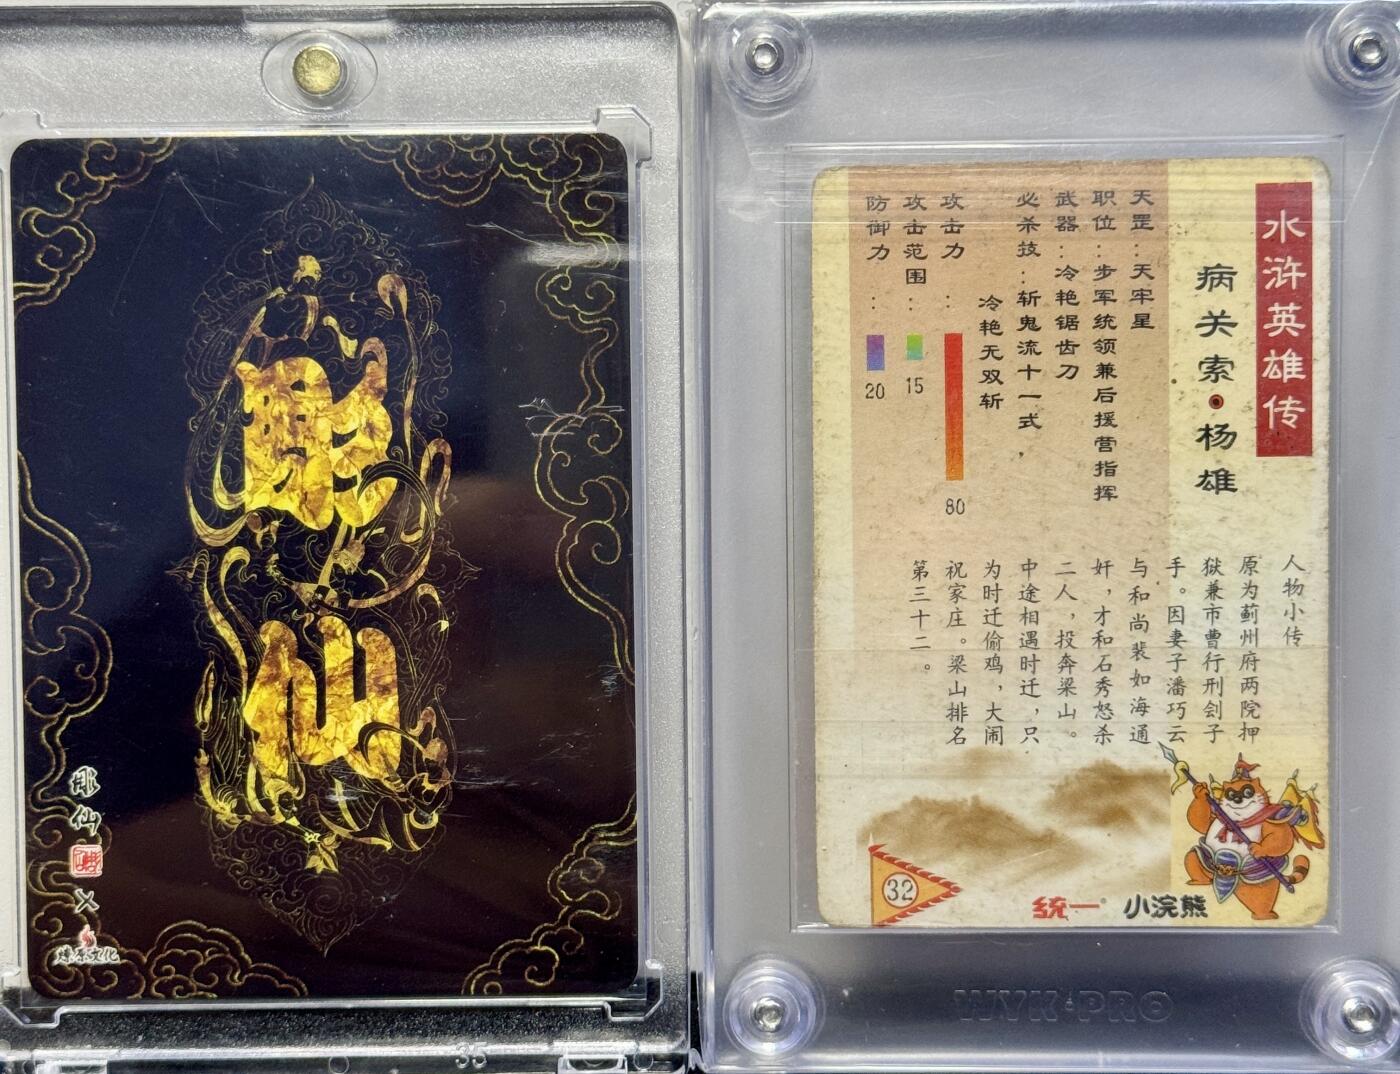 彫仙
彫仙
×
35
水浒英雄传
病关索·杨雄
天罡：天牢星
职位：步军统领兼后援营指挥
武器：冷艳锯齿刀
必杀技：斩鬼流十一式，
冷艳无双斩
攻击力：80
攻击范围：15
防御力：20
人物小传
原为蓟州府两院押
狱兼市曹行刑刽子
手。因妻子潘巧云
与和尚裴如海通
奸，才和石秀怒杀
二人，投奔梁山。
中途相遇时迁，只
为时迁偷鸡，大闹
祝家庄。梁山排名
第三十二。
32
统一 小浣熊
WYK·PRO